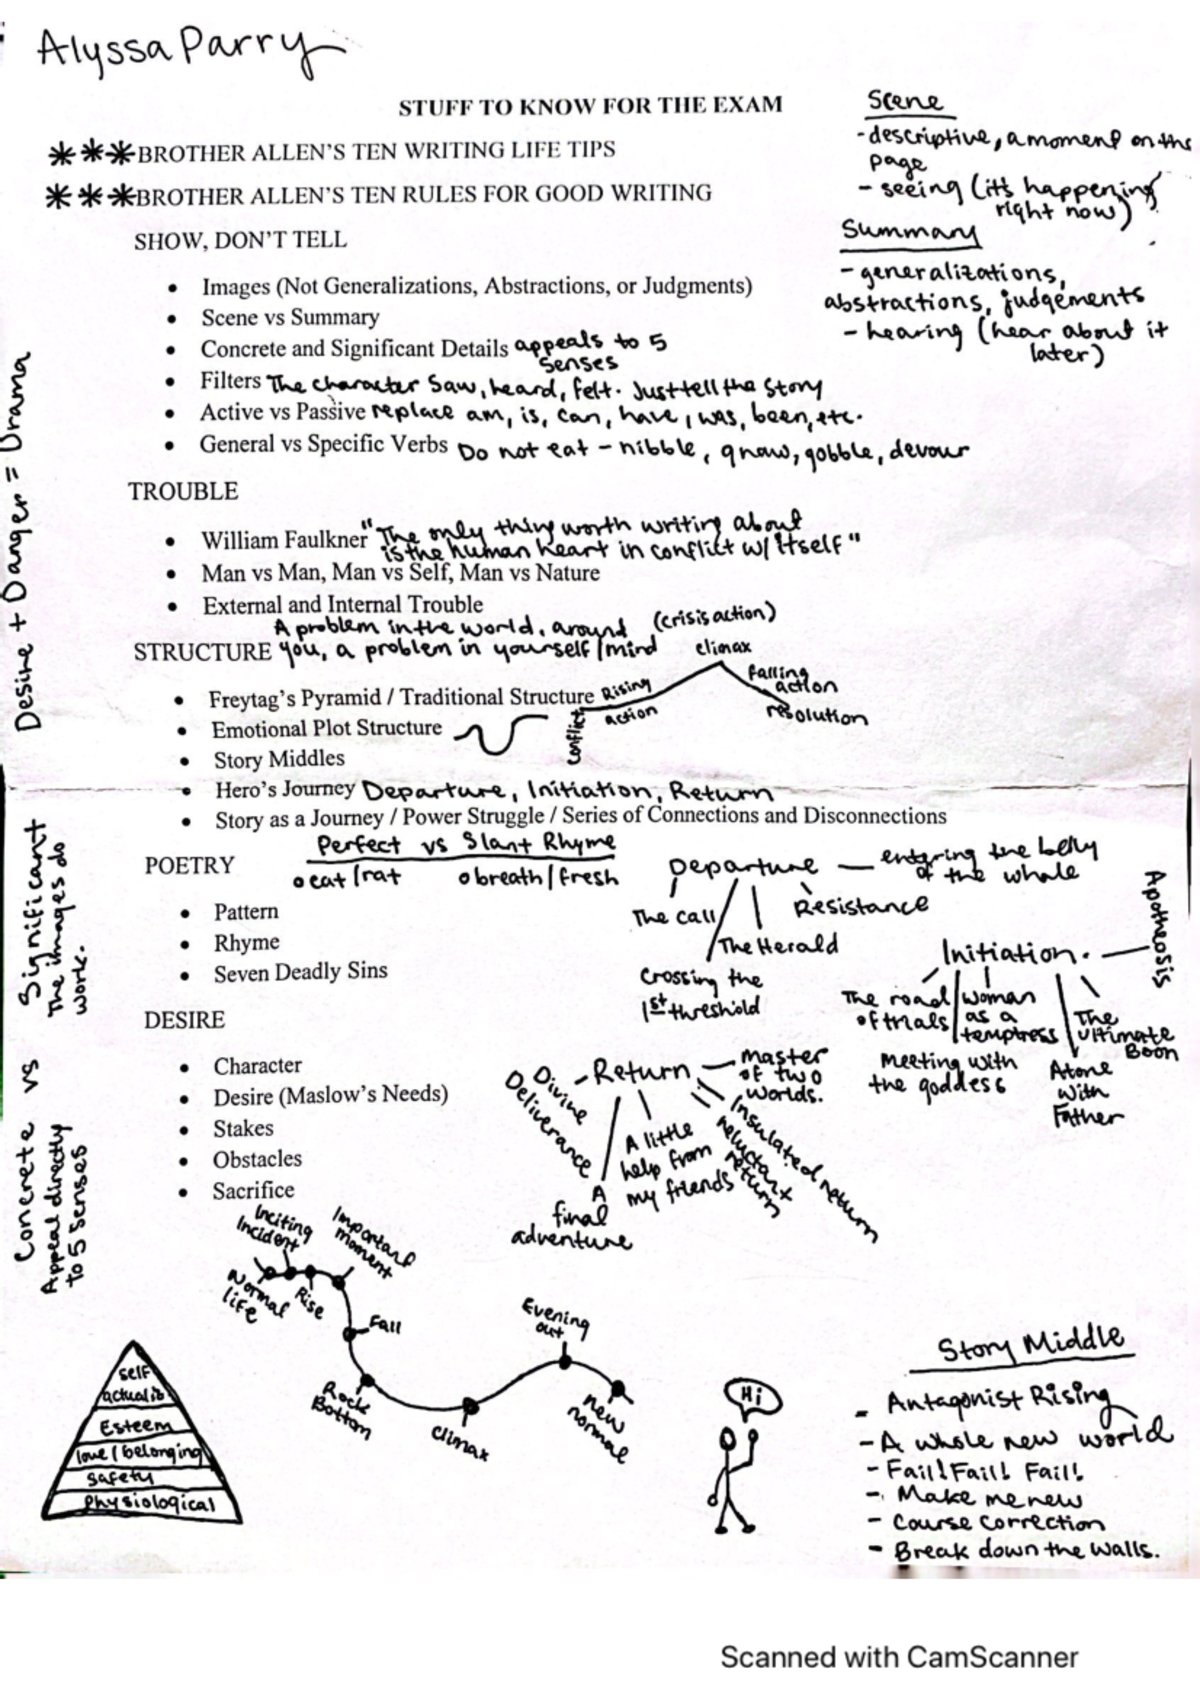 Alyssa Parry
STUFF TO KNOW FOR THE EXAM
*** BROTHER ALLEN'S TEN WRITING LIFE TIPS
*** BROTHER ALLEN'S TEN RULES FOR GOOD WRITING
Scene
- descriptive, a moment on the
page
- seeing (it's happening
right now)
Summary
- generalizations,
abstractions, judgements
- hearing (hear about it
later)
SHOW, DON'T TELL
• Images (Not Generalizations, Abstractions, or Judgments)
• Scene vs Summary
• Concrete and Significant Details appeals to 5
senses
• Filters The character saw, heard, felt. Just tell the story
• Active vs Passive replace am, is, can, have, was, been, etc.
• General vs Specific Verbs Do not eat - nibble, gnaw, gobble, devour
Desire + Danger = Drama
TROUBLE
• William Faulkner "The only thing worth writing about
is the human heart in conflict w/ itself"
• Man vs Man, Man vs Self, Man vs Nature
• External and Internal Trouble
A problem in the world, around
you, a problem in yourself/mind
STRUCTURE
• Freytag's Pyramid / Traditional Structure
conflict
Rising
action
(crisis action)
climax
falling
action
resolution
• Emotional Plot Structure
• Story Middles
• Hero's Journey Departure, Initiation, Return
• Story as a Journey / Power Struggle / Series of Connections and Disconnections
Concrete vs Significant
Appeal directly
to 5 senses
The images do
work.
POETRY
Perfect vs Slant Rhyme
o cat/rat o breath/fresh
• Pattern
• Rhyme
• Seven Deadly Sins
Departure — entering the belly
of the whale
The call
Resistance
The Herald
Crossing the
1st threshold
Initiation.
Apotheosis
The road
of trials
woman
as a
temptress
The
ultimate
Boon
Meeting with
the goddess
Atone
with
Father
DESIRE
• Character
• Desire (Maslow's Needs)
• Stakes
• Obstacles
• Sacrifice
Return
master
of two
worlds.
Divine
Deliverance
A
final
adventure
A little
help from
my friends
reluctant
return
Insulated return
Normal
life
Inciting
Incident
Rise
Important
moment
Fall
Rock
Bottom
Climax
Evening
out
new
normal
self
actualiz
Esteem
love/belonging
safety
physiological
Hi
Story Middle
- Antagonist Rising
- A whole new world
- Fail! Fail! Fail!
- Make me new
- Course correction
- Break down the walls.
Scanned with CamScanner